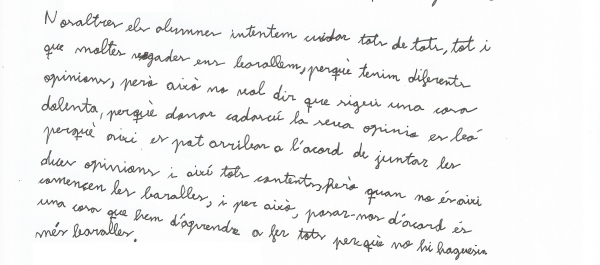 Nosaltres els alumnes intentem cuidar tots de tots, tot i
que moltes vegades ens barallem, perquè tenim diferents
opinions, però això no vol dir que sigui una cosa
dolenta, perquè donar cadascú la seva opinio es beó
perquè aixi es pot arribar a l'acord de juntar les
dues opinions i així tots contents, però quan no és aixi
comencen les baralles, i per això, posar-nos d'acord és
una cosa que hem d'aprendre a fer tots perquè no hi haguessin
més baralles.